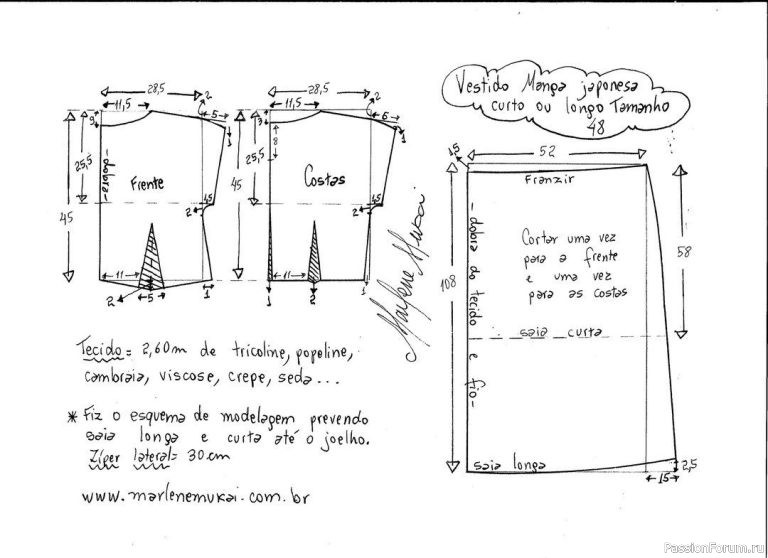 28,5
11,5
2
5
9
1
25,5
45
-dobra-
Frente
2
1,5
11
2
5
1
28,5
11,5
2
6
3
8
1
25,5
45
Costas
2
1,5
11
1
2
1
Marlene Mukai
Vestido Manga japonesa
curto ou longo Tamanho
48
1,5
52
Franzir
-dobra do tecido e fio-
Cortar uma vez
para a frente
e uma vez
para as costas
58
108
saia curta
saia longa
2,5
15
Tecido = 2,60m de tricoline, popeline,
cambraia, viscose, crepe, seda...
* Fiz o esquema de modelagem prevendo
saia longa e curta até o joelho.
Zíper lateral = 30cm
www.marlenemukai.com.br
PassionForum.ru